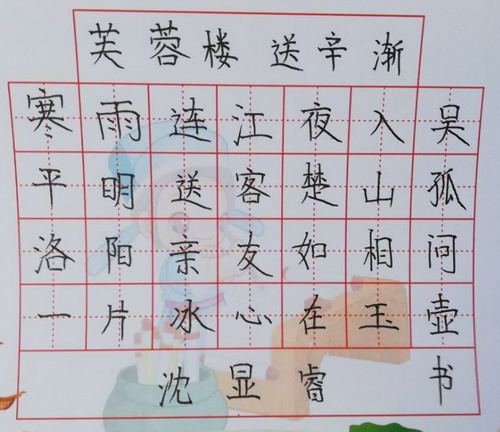 芙蓉楼 送辛渐
寒雨连江夜入吴
平明送客楚山孤
洛阳亲友如相问
一片冰心在玉壶
沈显睿 书